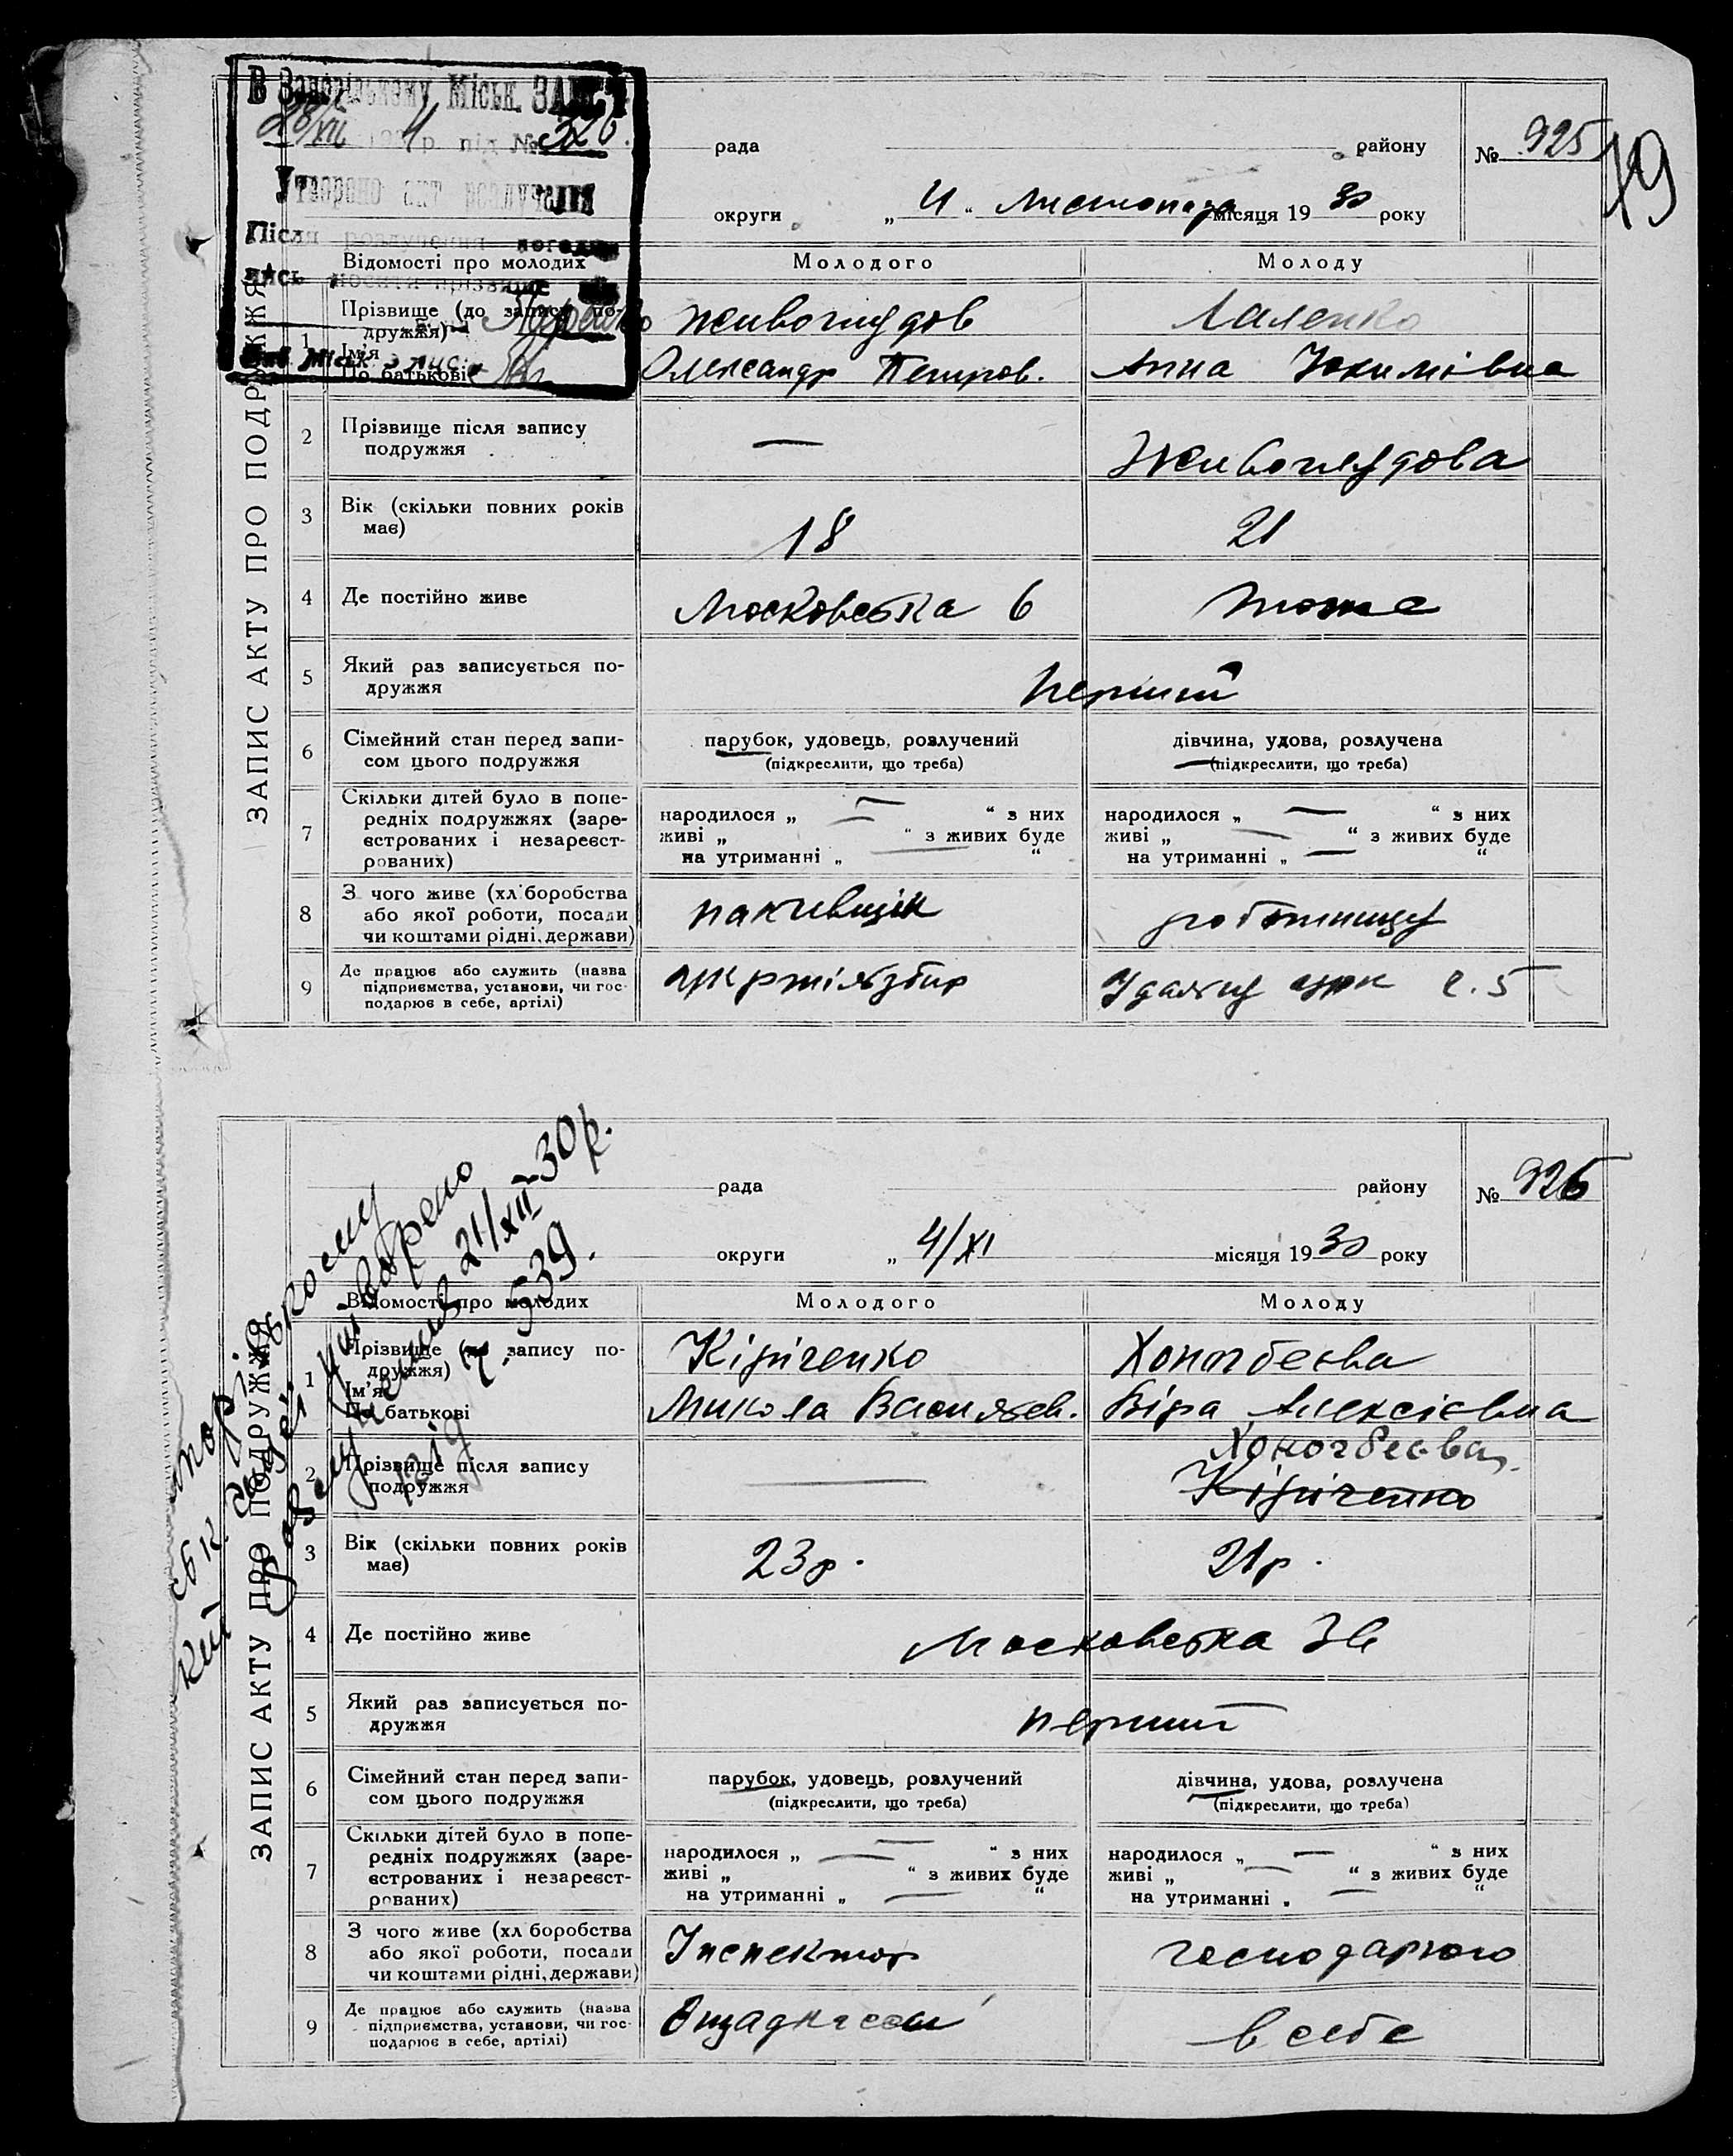 В Запорізькому Міськ. ЗАГСІ
28/XII р. під № 326.
Утворено акт розлучення
Після розлучення
носити прізвище
рада району № 925
19
округи „ 4 “ листопада місяця 19 30 року
ЗАПИС АКТУ ПРО ПОДРУЖЖЯ
Відомості про молодих Молодого Молоду
1 Прізвище (до запису подружжя) Живоглудов Лаленко
Ім'я
По батькові Олександр Петров. Анна Юхимівна
2 Прізвище після запису
подружжя — Живоглудова
3 Вік (скільки повних років
має) 18 21
4 Де постійно живе Московська 6 тоже
5 Який раз записується по-
дружжя перший
6 Сімейний стан перед запи- парубок, удовець, розлучений дівчина, удова, розлучена
сом цього подружжя (підкреслити, що треба) (підкреслити, що треба)
7 Скільки дітей було в попе-
редніх подружжях (заре- народилося „ — “ з них народилося „ — “ з них
єстрованих і незареєст- живі „ — “ з живих буде живі „ — “ з живих буде
рованих) на утриманні „ — “ на утриманні „ — “
8 З чого живе (хліборобства
або якої роботи, посади пакивщік робітницу
чи коштами рідні, держави)
9 Де працює або служить (назва
підприємства, установи, чи гос-
подарює в себе, артілі) црк 2. 5
рада району № 926
округи „ 4/XI місяця 19 30 року
ЗАПИС АКТУ ПРО ПОДРУЖЖЯ
розлучення 21/XII-30р.
під ч. 539.
Відомості про молодих Молодого Молоду
1 Прізвище (до запису по- Кіріченко Хоногбеєва
дружжя)
Ім'я
По батькові Микола Васильев. Віра Алексієвна
2 Прізвище після запису — Хоногбеєва
подружжя Кіріченко
3 Вік (скільки повних років
має) 23р. 21р.
4 Де постійно живе Московська 36
5 Який раз записується по-
дружжя перший
6 Сімейний стан перед запи- парубок, удовець, розлучений дівчина, удова, розлучена
сом цього подружжя (підкреслити, що треба) (підкреслити, що треба)
7 Скільки дітей було в попе-
редніх подружжях (заре- народилося „ — “ з них народилося „ — “ з них
єстрованих і незареєст- живі „ “ з живих буде живі „ — “ з живих буде
рованих) на утриманні „ — “ на утриманні „ — “
8 З чого живе (хліборобства
або якої роботи, посади Інспектор господаркою
чи коштами рідні, держави)
9 Де працює або служить (назва
підприємства, установи, чи гос-
подарює в себе, артілі) Ощадкаси в себе